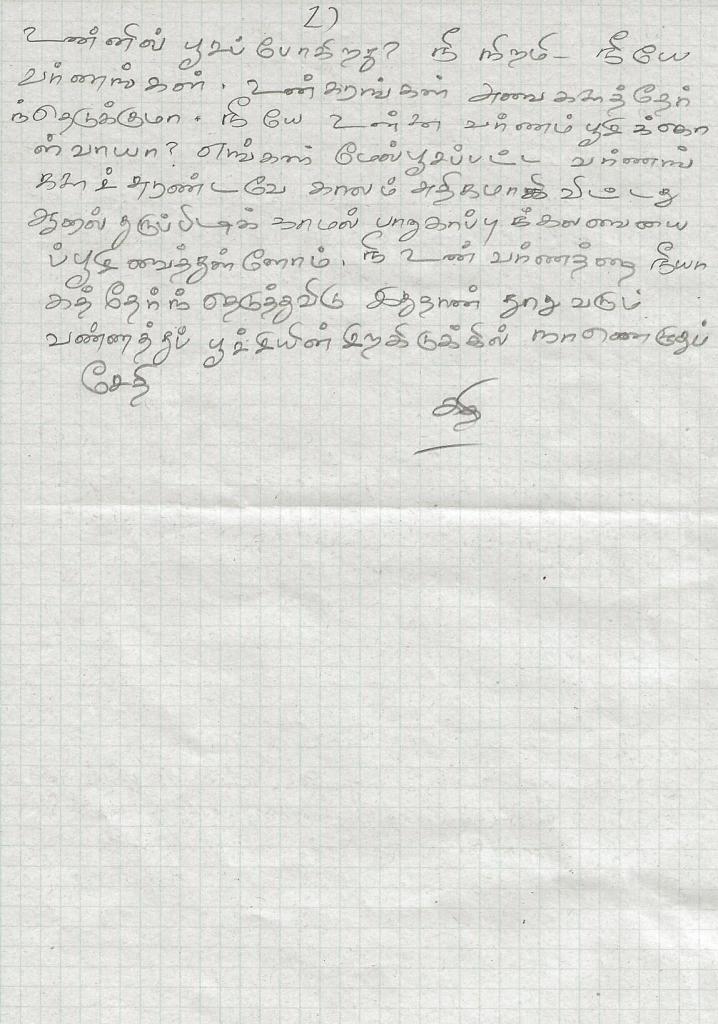 2)
உன்னில் பூசப் போகிறது? நீ நிறம் - நீயே
வர்ணங்கள். உன் கரங்கள் அவைகளைத்தேர்
ந்தெடுக்குமா. நீயே உன்ன வர்ணம் பூசிக்கொ
ள்வாயா? எங்கள் மேல்பூசப்பட்ட வர்ணங்
களைச் சுரண்டவே காலம் அதிகமாகி விட்டது
ஆனால் துருப்பிடிக்காமல் பாதுகாப்பு க்கலவையை
ப்பூசி வைத்துள்ளோம். நீ உன் வர்ணத்தை நீயா
கத் தேர்ந் தெடுத்துவிடு இதுதான் தூது வரும்
வண்ணத்துப் பூச்சியின் இறகிடுக்கில் நானெழுதும்
சேதி